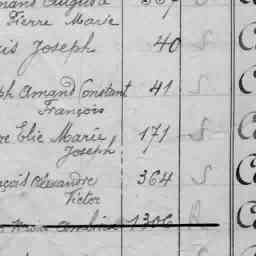 mans Augusta 367
Pierre Marie
is Joseph 40 S
ph Amand Constant 41 S
François
re Elie Marie 171 S
Joseph
nçois Alexandre 364 S
Victor
Ambroise 1306